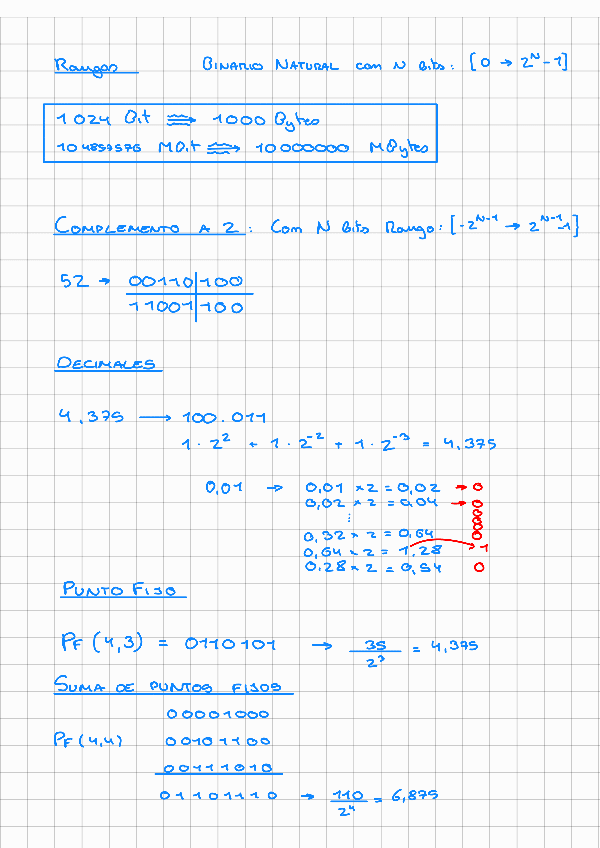 Rangos BINARIO NATURAL con N bits: [0 → 2^N - 1]
1024 Bit ⇌ 1000 Bytes
104857576 MBit ⇌ 10000000 MBytes
COMPLEMENTO A 2: Con N bits Rango: [-2^N-1 → 2^N-1 -1]
52 → 00110|100
11001|100
DECIMALES
4.375 → 100.011
1 · 2^2 + 1 · 2^-2 + 1 · 2^-3 = 4,375
0,01 → 0,01 × 2 = 0,02 → 0
0,02 × 2 = 0,04 → 0
⋮ 0
0
0,32 × 2 = 0,64 0
0,64 × 2 = 1.28 → 1
0.28 × 2 = 0,54 0
PUNTO FIJO
PF (4,3) = 0110101 → 35/2^3 = 4,375
SUMA DE PUNTOS FIJOS
00001000
PF (4,4) 00101100
00111010
01101110 → 110/2^4 = 6,875